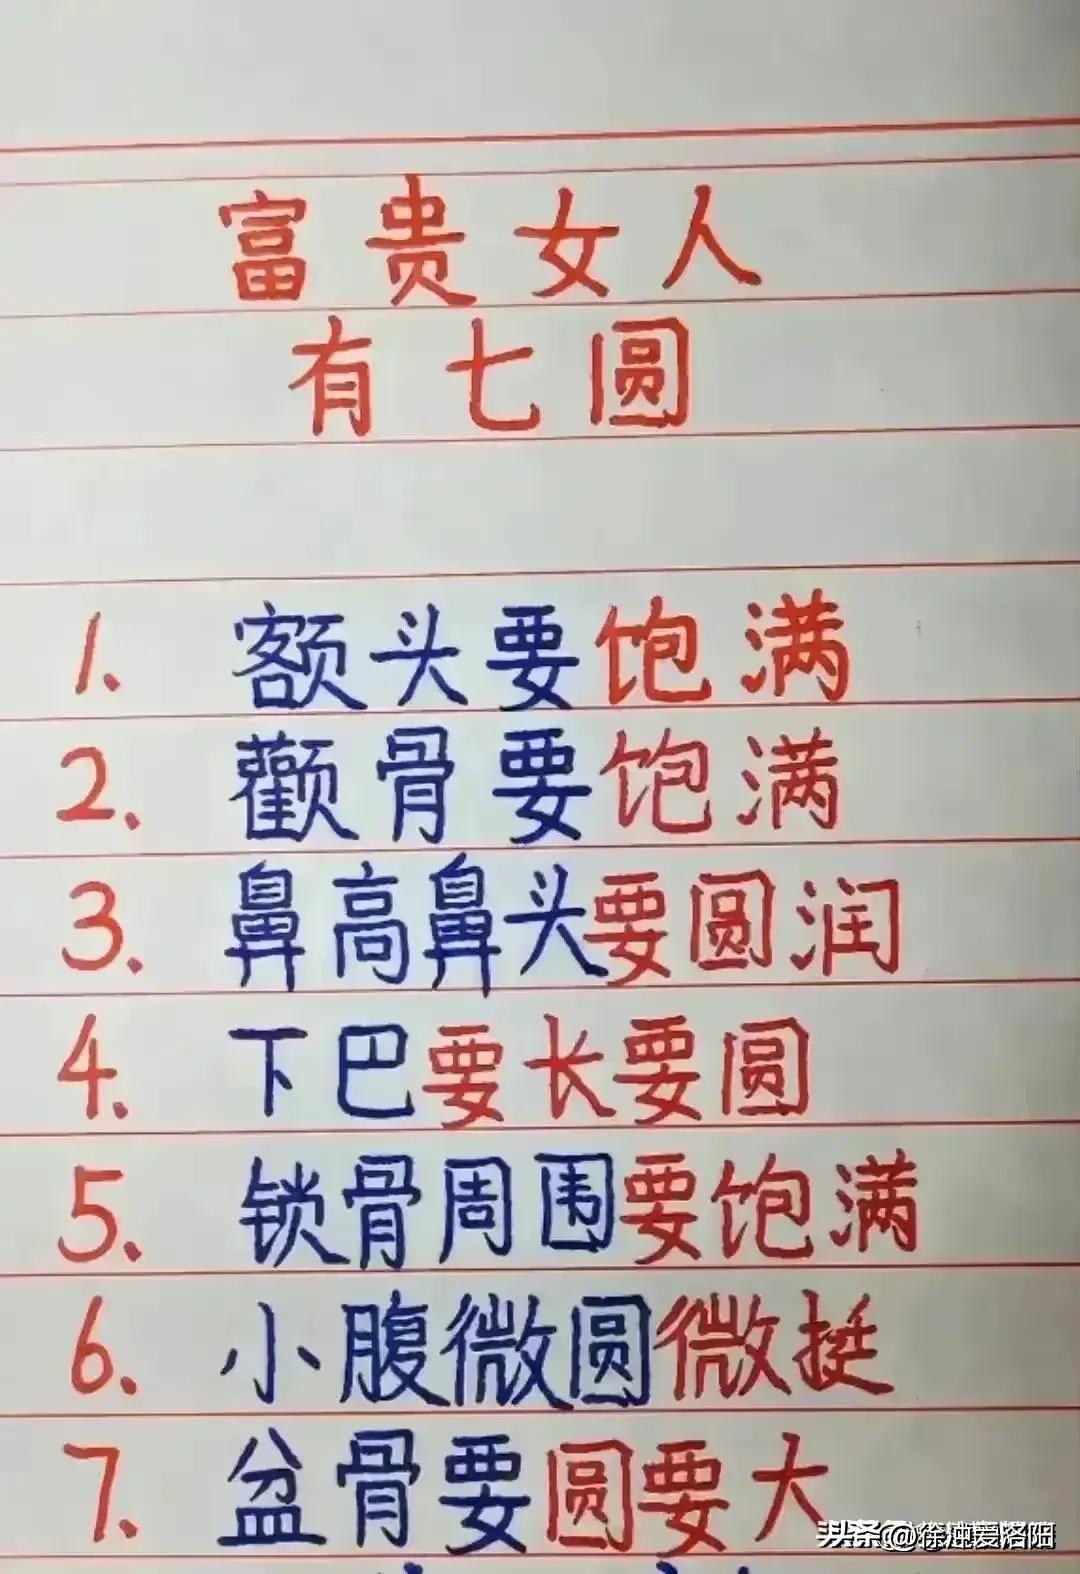 富贵女人
有七圆
1. 额头要饱满
2. 颧骨要饱满
3. 鼻高鼻头要圆润
4. 下巴要长要圆
5. 锁骨周围要饱满
6. 小腹微圆微挺
7. 盆骨要圆要大
头条 @徐浊爱洛阳